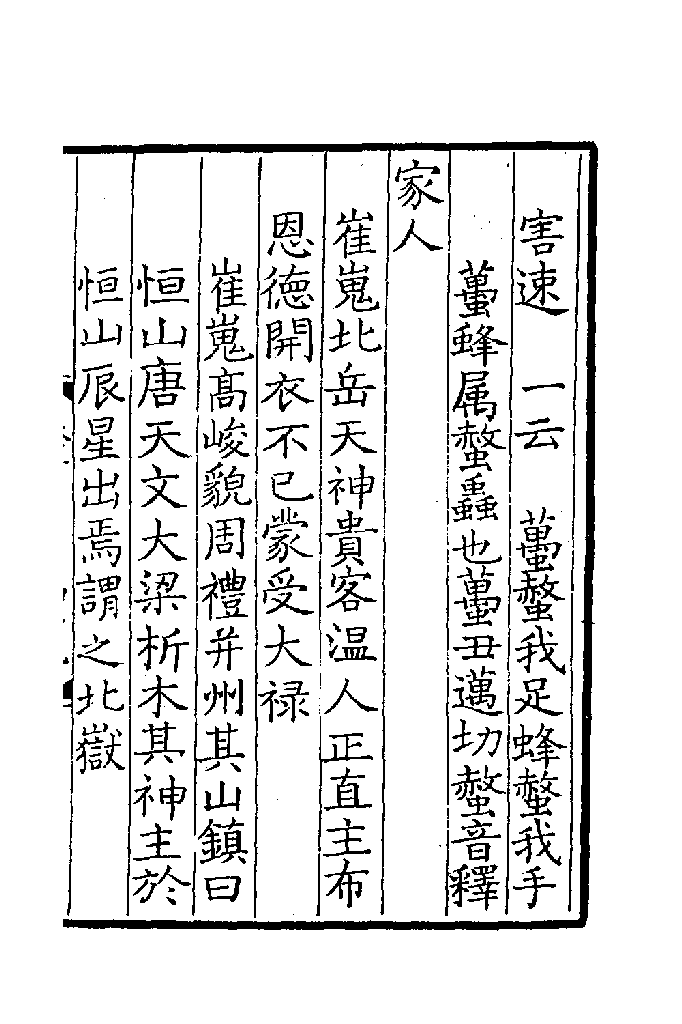 害速　一云　蠆螫我足蜂螫我手
蠆蜂属螫蟲也蠆丑邁切螫音釋
家人
崔嵬北岳天神貴客温人正直主布
恩徳開衣不已蒙受大禄
崔嵬髙峻貌周禮并州其山鎮曰
恒山唐天文大梁析木其神主於
恒山辰星出焉謂之北嶽